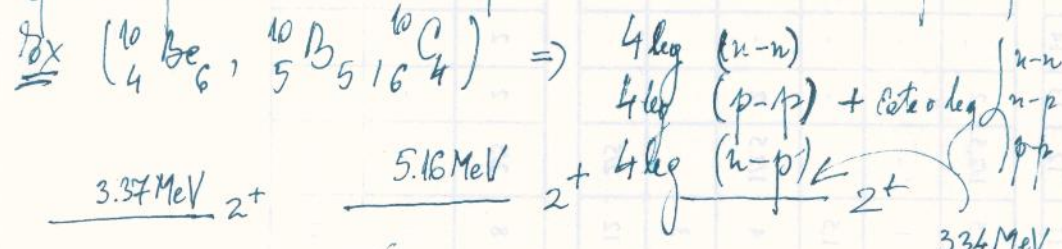 Ex (¹⁰₄Be₆, ¹⁰₅B₅, ¹⁰₆C₄) ⇒ 4 leg (n-n)
4 leg (p-p) + cate o leg { n-n n-p p-p
4 leg (n-p)
3.37 MeV 2⁺ 5.16 MeV 2⁺ 2⁺
3.34 MeV